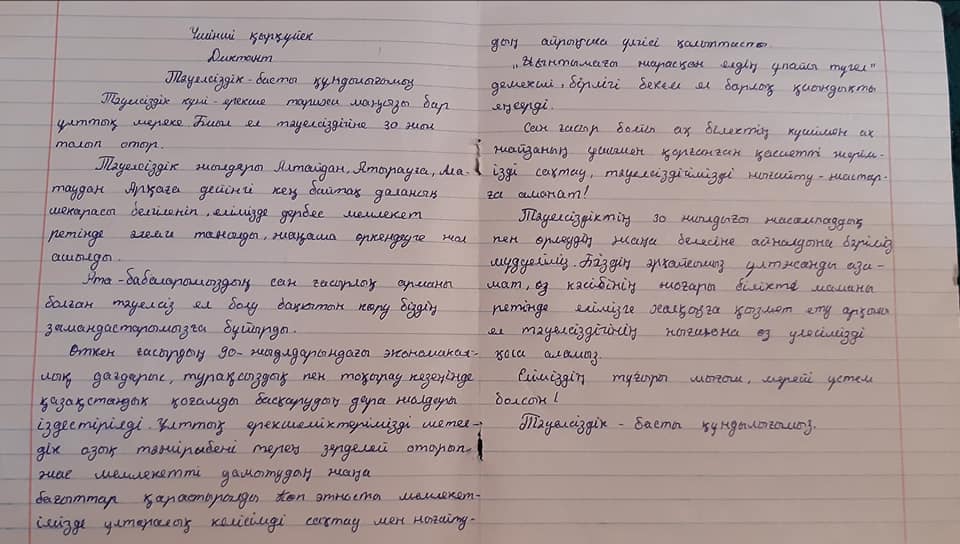 Үшінші қыркүйек
Диктант
Тәуелсіздік - басты құндылығымыз
Тәуелсіздік күні - ерекше тарихи маңызы бар
ұлттық мереке. Биыл ел тәуелсіздігіне 30 жыл
толып отыр.
Тәуелсіздік жылдары Алтайдан, Атырауға, Ала-
таудан Арқаға дейінгі кең байтақ даланың
шекарасы белгіленіп, елімізде дербес мемлекет
ретінде әлемги танылды, жаңаша өркендеуге жол
ашылды.
Ата-бабаларымыздың сан ғасырлық арманы
болған тәуелсіз ел болу бақытын көру біздің
замандастарымызға бұйырды.
Өткен ғасырдың 90-жылдарындағы экономикал-
лық дағдарыс, тұрақсыздық пен тоқырау кезеңінде
қазақстандық қоғамды басқарудың дара жолдары
іздестірілді. Ұлттық ерекшеліктерімізді метел-
дік озық тәжірибені терең зерделей отырып-
жас мемлекетті дамытудың жаңа
бағыттар қарастырылды Көп этносты мемлекет-
імізде ұлтаралық келісімді сақтау мен нығайту-
дың айрықша үлгісі қалыптасты.
"Ынтымағы жарасқан елдің ұпайы түгел"
демекші, бірлігі бекем ел барлық қиындықты
еңсерді.
Сан ғасыр бойы ақ білектің күшімен ақ
найзаның ұшымен қорғанған қасиетті жерім-
ізді сақтау, тәуелсіздігімізді нығайту - жастар-
ға аманат!
Тәуелсіздіктің 30 жылдығы жасампаздық
пен өрлеудің жаңа белесіне айналдына бәріміз
мүдделіміз. Біздің әрқайсымыз ұлтжанды аза-
мат, өз кәсібінің жоғары білікті маманы
ретінде елімізге халқыға қызмет ету арқылы
ел тәуелсіздігінің нығаюна өз үлесімізді
қоса аламыз.
Еліміздің тұғыры мығым, мерейі үстем
болсын!
Тәуелсіздік - басты құндылығымыз.